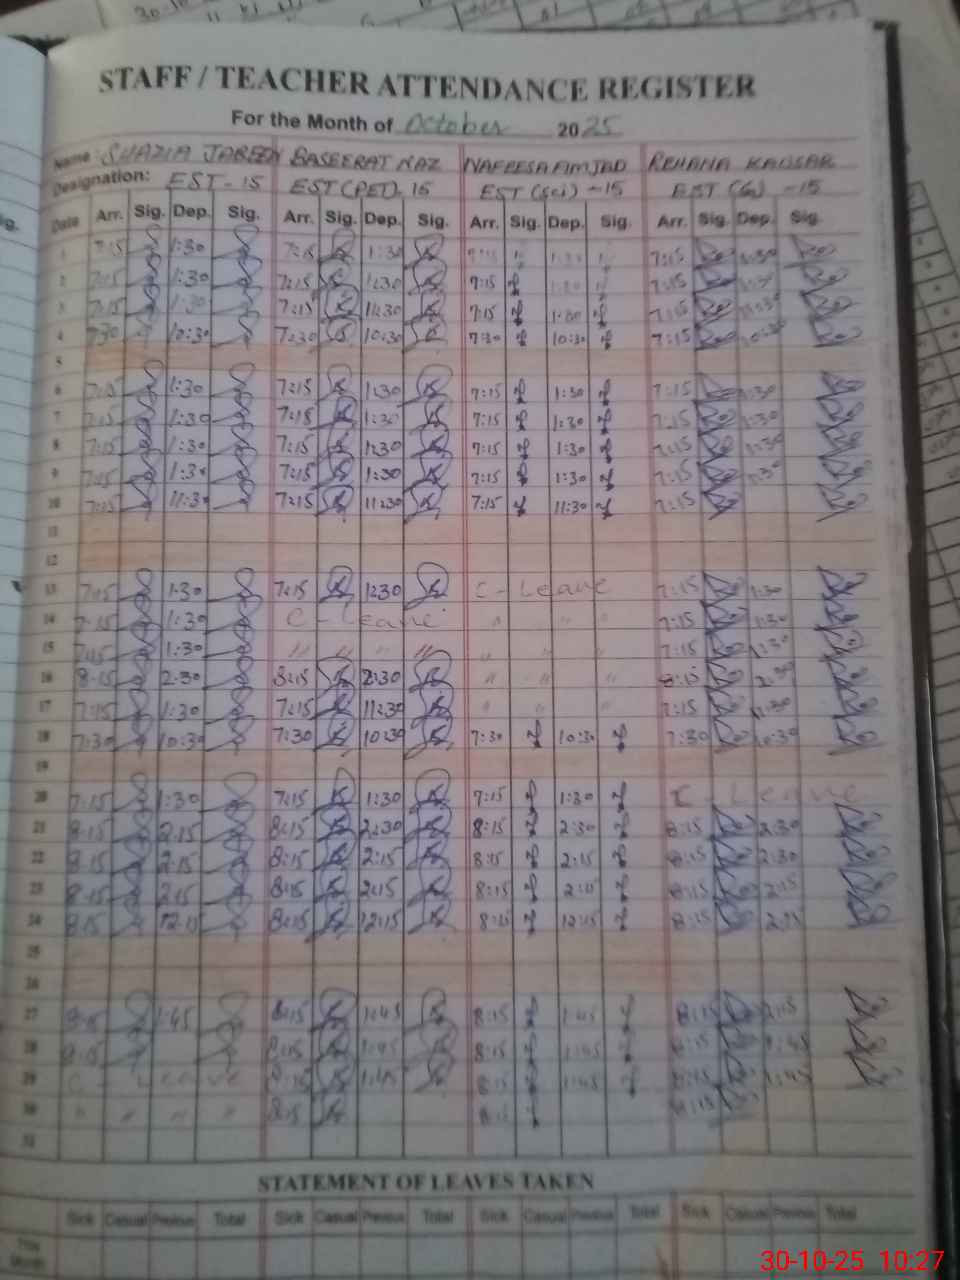 STAFF / TEACHER ATTENDANCE REGISTER
For the Month of October 2025
Name: SHAZIA JABEEN BASEERAT NAZ NAFEESA AMJAD REHANA KAUSAR
Designation: EST - 15 EST (PET) - 15 EST (Sci) - 15 EST (G) - 15
Date Arr. Sig. Dep. Sig. Arr. Sig. Dep. Sig. Arr. Sig. Dep. Sig. Arr. Sig. Dep. Sig.
1 7:15 1:30 7:15 1:30 7:15 1:30
2 7:15 1:30 7:15 1:30 7:15 7:15
3 7:15 1:30 7:15 1:30 7:15 1:30 7:15 1:30
4 7:30 10:30 7:30 10:30 7:30 10:30 7:15 10:30
5
6 7:15 1:30 7:15 1:30 7:15 1:30 7:15 1:30
7 7:15 1:30 7:15 1:30 7:15 1:30 7:15 1:30
8 7:15 1:30 7:15 1:30 7:15 1:30 7:15 1:30
9 7:15 1:30 7:15 1:30 7:15 1:30 7:15 1:30
10 7:15 11:30 7:15 11:30 7:15 11:30 7:15
11
12
13 7:15 1:30 7:15 1:30 C - Leave 7:15 1:30
14 7:15 1:30 C - Leave " " " 7:15 1:30
15 7:15 1:30 " " " " " " " 7:15 1:30
16 8:15 2:30 8:15 2:30 " " " 8:15 2:30
17 7:15 1:30 7:15 11:30 " " " 7:15 11:30
18 7:30 10:30 7:30 10:30 7:30 10:30 7:30 10:30
19
20 7:15 1:30 7:15 1:30 7:15 1:30 C - Leave
21 8:15 2:15 8:15 2:30 8:15 2:30 8:15 2:30
22 8:15 2:15 8:15 2:15 8:15 2:15 8:15 2:30
23 8:15 2:15 8:15 2:15 8:15 2:15 8:15 2:15
24 8:15 12:15 8:15 12:15 8:15 12:15 8:15
25
26
27 8:15 1:45 8:15 1:45 8:15 1:45 8:15
28 8:15 8:15 1:45 8:15 1:45 8:15 1:45
29 C - Leave 8:15 1:45 8:15 1:45 8:15 1:45
30 " " " " 8:15 8:15 8:15
31
STATEMENT OF LEAVES TAKEN
Sick Casual Previous Total Sick Casual Previous Total Sick Casual Previous Total Sick Casual Previous Total
This Month
30-10-25 10:27